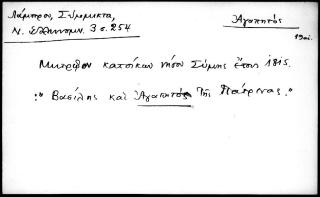 Λάμπρος, Σύμμικτα,
Ν. Ἑλληνομν. 3 σ. 254
Ἀγαπητός
19 αἰ.
Μητρῷον κατοίκων νήσου Σύμης ἔτους 1815.
:" Βασίλης καὶ Ἀγαπητός τῆς Πατρίνας."